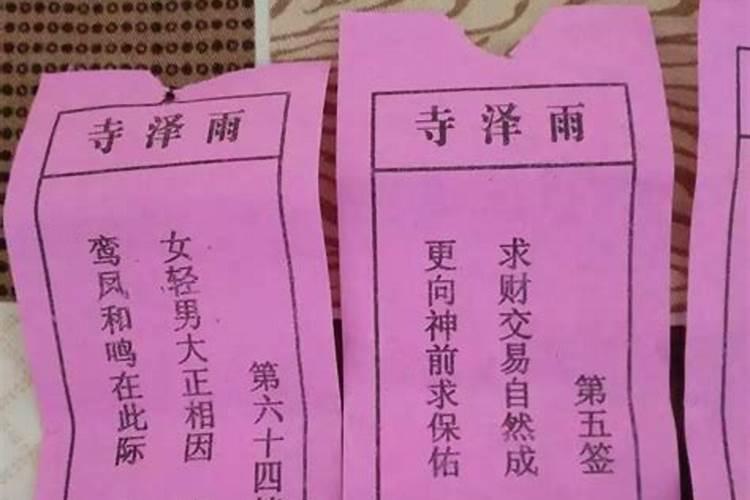 雨泽寺
第六十四
女轻男大正相因
鸾凤和鸣在此际
雨泽寺
第五签
求财交易自然成
更向神前求保佑